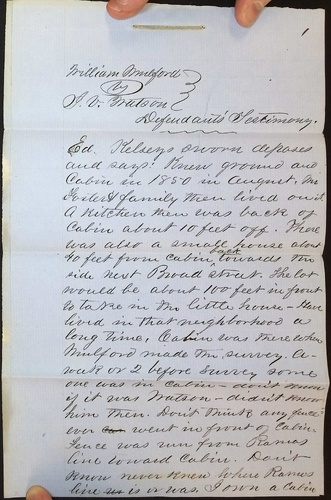 1
William Mulford
vs
S. V. Watson
Defendants' Testimony.
Ed. Kelsey sworn deposes
and says: Knew ground and
Cabin in 1850 in August. Mr
& family then lived on it.
A Kitchen then was back of
Cabin about 10 feet off. There
was also a small house about
40 feet from Cabin back towards the
side next Broad street. The lot
would be about 100 feet in front
to take in the little house - Have
lived in that neighborhood a
long time. Cabin was there when
Mulford made the survey. A
week or 2 before survey some
one was in Cabin - don't know
if it was Watson - didn't know
him then. Don't think any fence
ever went in front of Cabin.
Fence was run from Rames
line toward Cabin. Don't
Know never Knew where Rames
line is or was. I own a Cabin